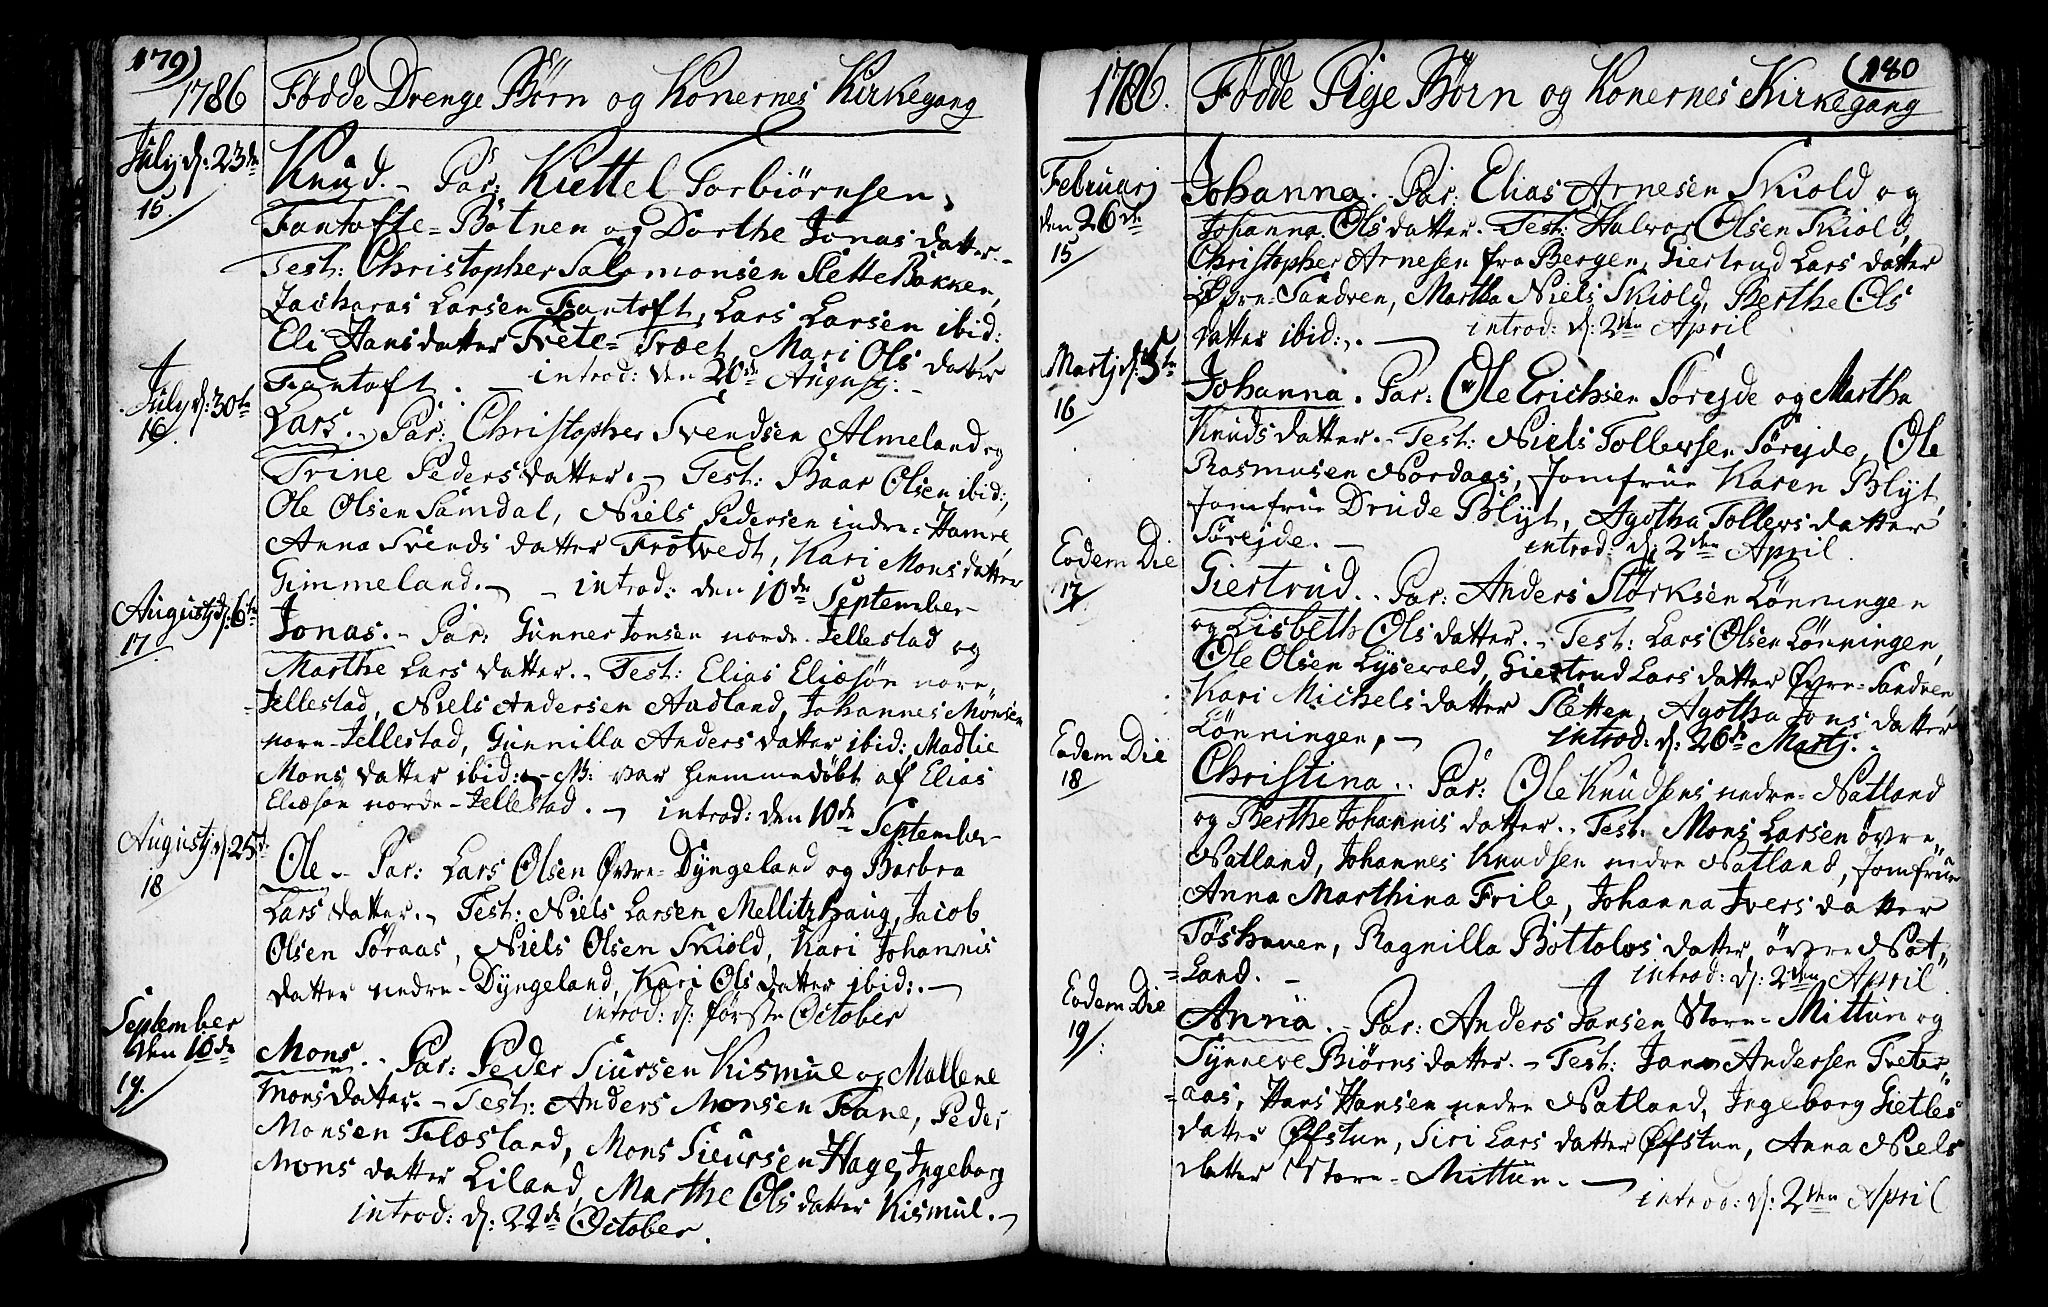 179)
1786 Fødde Drenge Børn og Konernes Kirkegang
July d: 23de
15.
Knud. - Par: Kiettel Torbiørnsen,
Fantofte=Botnen og Dorthe Jonas datter.-
Test: Christopher Salomonsen SletteBakken,
Zacharas Larsen Fantoft, Lars Larsen ibid:
Eli Hansdatter Tvete=Træet, Mari Ols datter
Fantoft. - introd: den 20de Augustj. -
July d: 30te
16.
Lars. - Par: Christopher Svendsen Almeland og
Trine Peders datter. - Test: Baar Olsen ibid:,
Ole Olsen Samdal, Niels Pedersen indre=Hamre,
Anna Svends datter Frotvedt, Kari Mons datter
Gimmeland. - - introd: den 10de September-
Augustj d: 6te
17.
Jonas. - Par: Gunner Jonsen nordr-Jellestad og
Marthe Lars datter. - Test: Elias Eliæsøn norn=
=Jellestad, Niels Andersen Aadland, Johannes Monsen
norn-Jellestad, Gunnilla Anders datter ibid: Madlie
Mons datter ibid: - NB: var hiemmedøbt af Elias
Eliæsøn nordn-Jellestad. - introd: den 10de September-
Augustj d: 25de
18
Ole. - Par: Lars Olsen Øvre-Dyngeland og Barbra
Lars datter. - Test: Niels Larsen Mellitzhaug, Jacob
Olsen Søraas, Niels Olsen Skiold, Kari Johannis
datter nedre-Dyngeland, Kari Ols datter ibid:. -
introd: d: første October
September
den 10de
19.
Mons. - Par: Peder Siursen Kismul og Mallene
Monsdatter. - Test: Anders Monsen Fane, Peder
Monsen Flæsland, Mons Sieursen Hage, Ingeborg
Mons datter Liland, Marthe Ols datter Kismul. -
introd: d: 22de October.
(180
1786. Fødde Pige Børn og Konernes Kirkegang
Februarj
den 26de
15
Johanna. Par: Elias Arnesen Skiold og
Johanna Ols datter. Test: Halvor Olsen Skiold,
Christopher Arnesen fra Bergen, Giertrud Lars datter
Øvre-Sandven, Martha Niels Skiold, Berthe Ols
datter ibid:. - introd: d: 2den April
Martj d: 5te
16
Johanna. Par: Ole Erichsen Sørejde og Martha
Knuds datter. - Test: Niels Tollevsen Sørejde, Ole
Rasmusen Nordaas, Jomfrue Karen Blyt,
Jomfrue Drude Blyt, Agotha Tollevs datter
Sørejde. - introd: d: 2den April.
Eodem Die
17
Giertrud. - Par: Anders Størksen Lønningen
og Lisbeth Ols datter. - Test: Lars Olsen Lønningen,
Ole Olsen Lysevold, Giertrud Lars datter Øvre-Sandven,
Kari Michels datter Sletten, Agotha Jons datter
Lønningen, - introd: d: 26de Martj. -
Eodem Die
18
Christina. - Par: Ole Knudsens nedre-Natland
og Berthe Johannis datter. - Test: Mons Larsen øvre=
Natland, Johannes Knudsen nedre Natland, Jomfrue
Anna Marthina Frile, Johanna Ivers datter
Tøshaven, Ragnilla Bottolvs datter øvre Nat=
=Land. - introd: d: 2den April.
Eodem Die
19
Anna. - Par: Anders Jansen Store-Mittun og
Synneve Biørns datter. - Test: Jan Andersen Tveter=
=aas, Hans Hansen nedre Natland, Ingeborg Gietles
datter Øfstun, Siri Lars datter Øfstun, Anna Niels
datter Store-Mittun. -
introd: d: 2den April